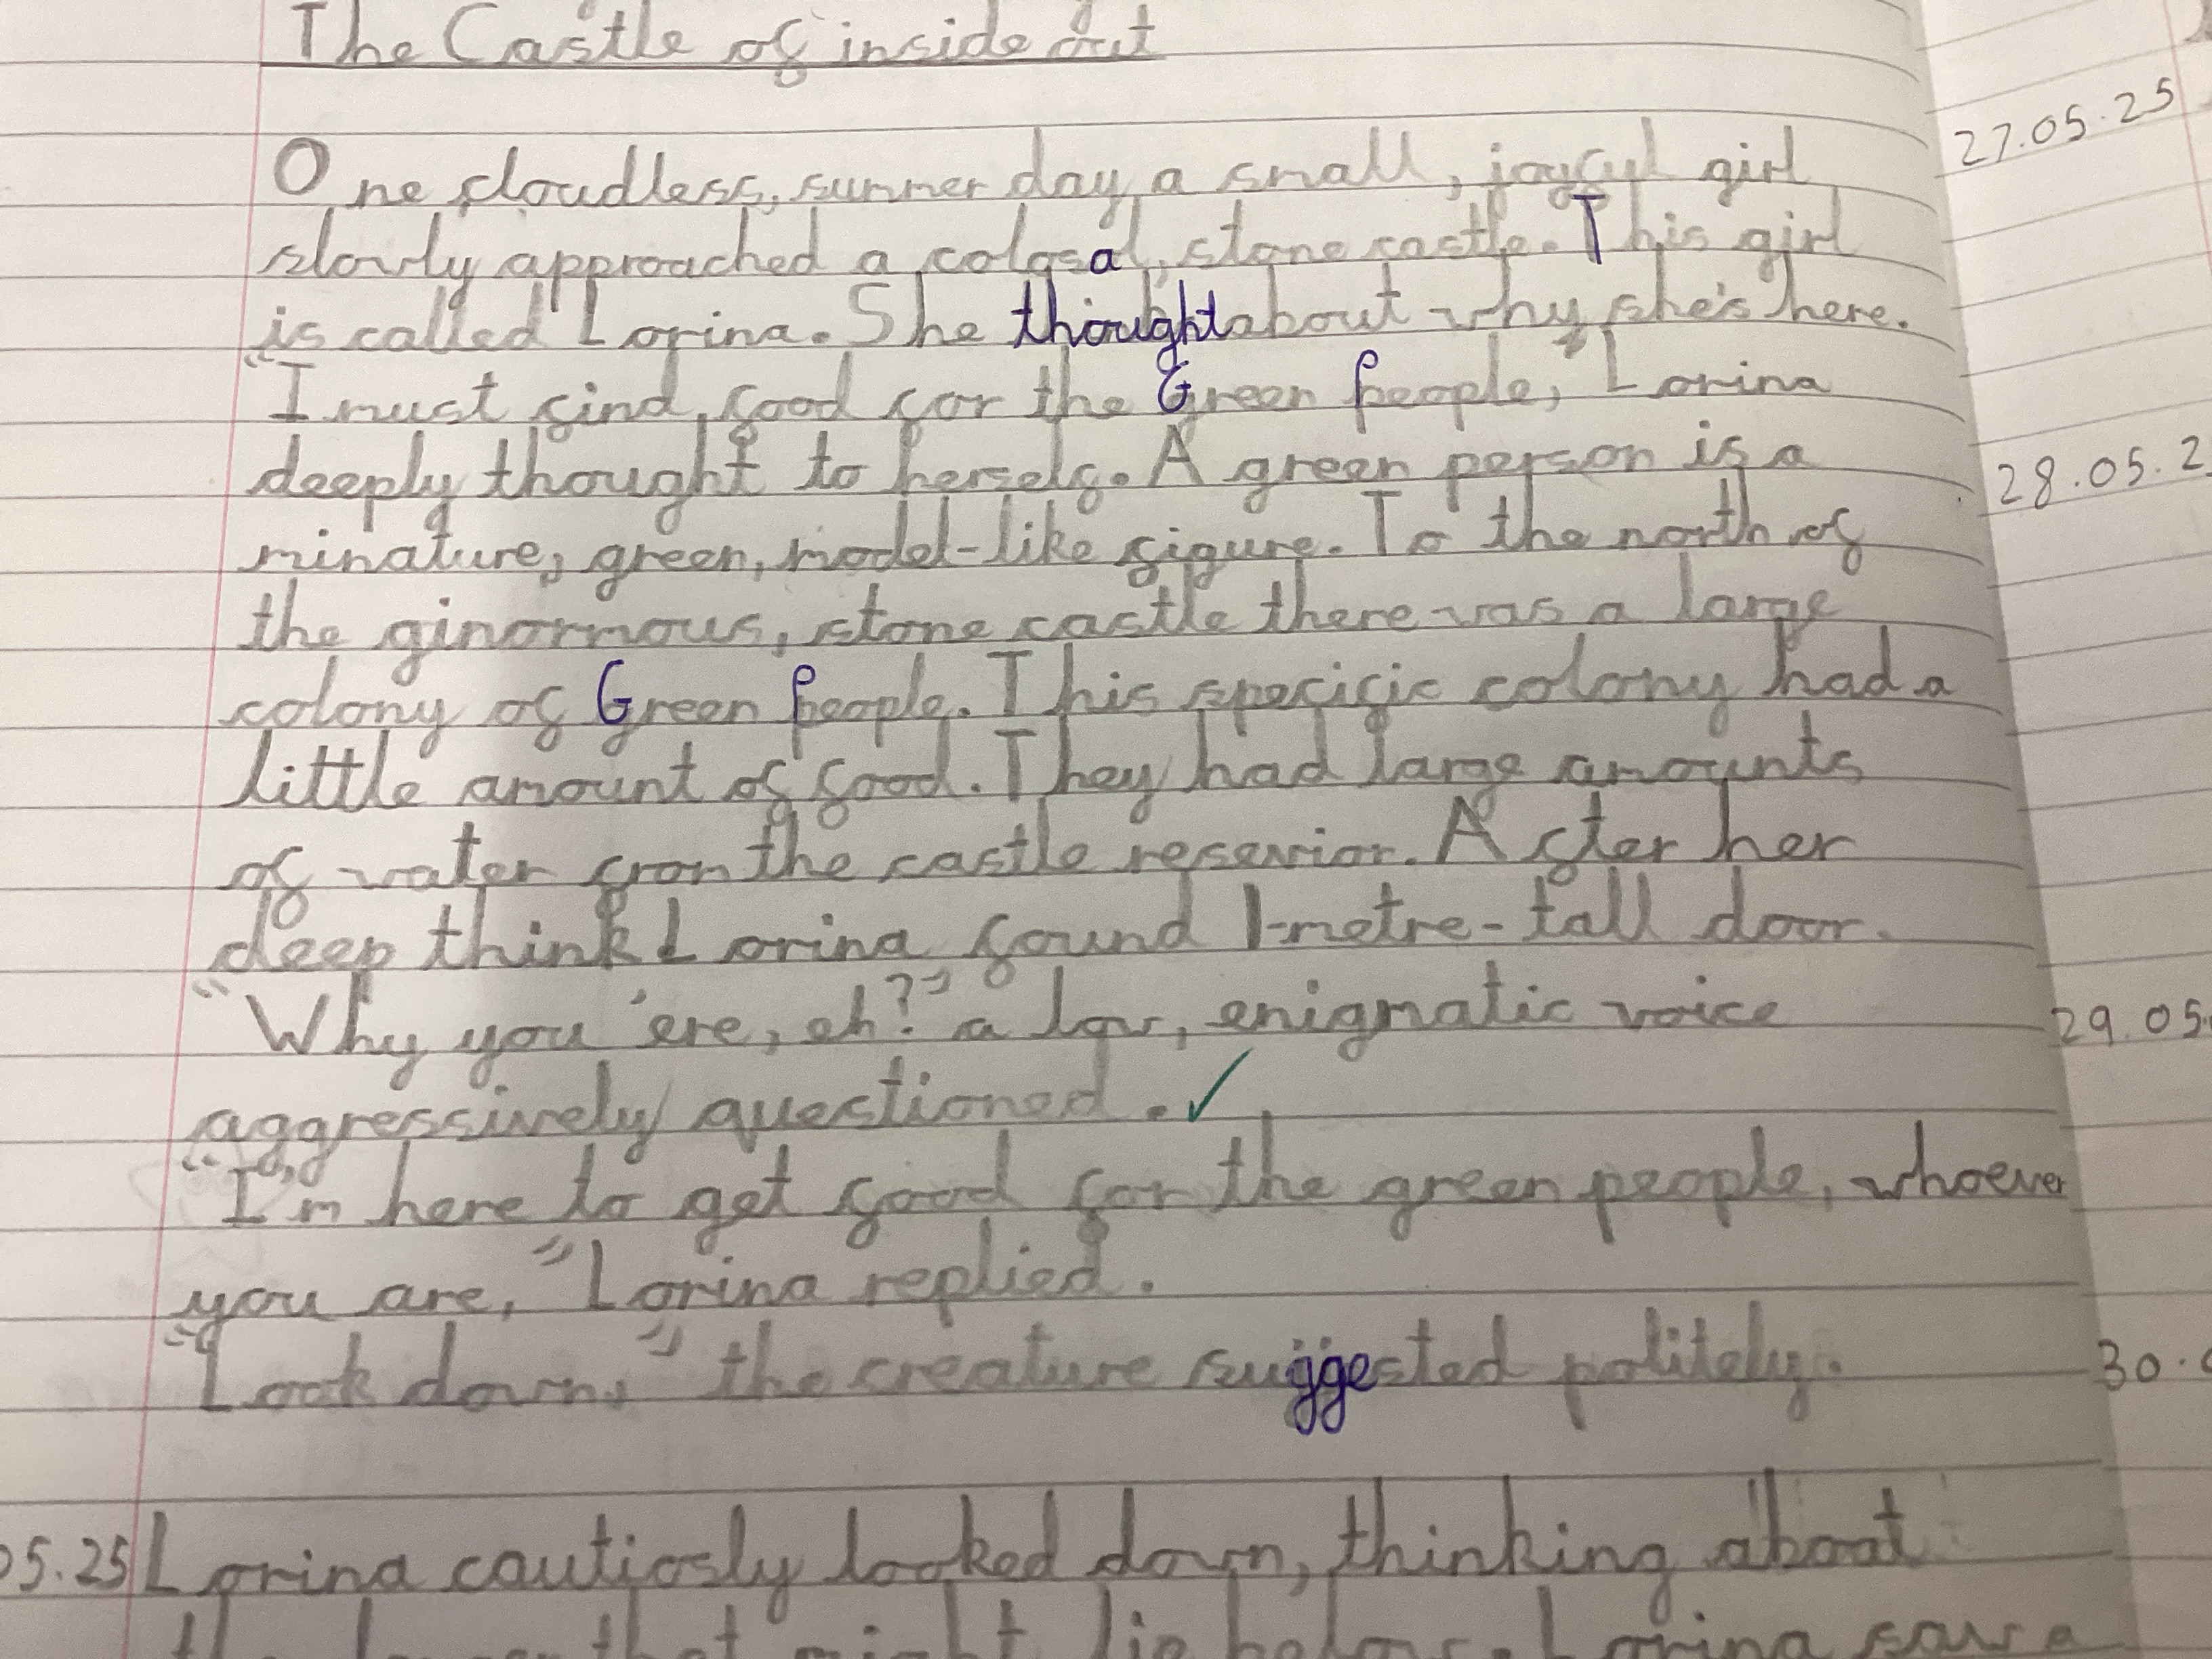 The Castle of inside out
27.05.25
One cloudless, summer day a small, joyful girl
slowly approached a colosal, stone castle. This girl
is called Lorina. She thought about why she's here.
"I must find food for the Green People," Lorina
deeply thought to herself. A green person is a
28.05.2
minature, green, model-like figure. To the north of
the ginormous, stone castle there was a large
colony of Green People. This specific colony had a
little amount of food. They had large amounts
of water from the castle resevior. After her
deep think Lorina found 1-metre-tall door.
"Why you 'ere, eh?" a low, enigmatic voice
29.05.
aggressively questioned.
"I'm here to get food for the green people, whoever
you are," Lorina replied.
"Look down," the creature suggested politely.
30.
05.25 Lorina cautiosly looked down, thinking about
that might lie below. Lorina saw a